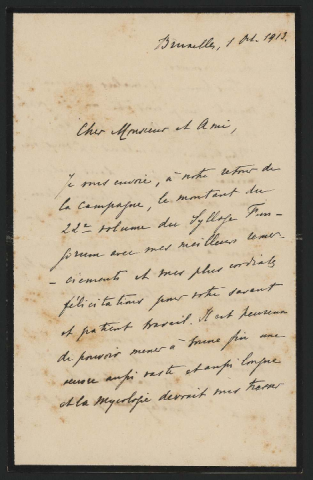 Bruxelles, 1 Oct. 1913.
Cher Monsieur et Ami,
Je vous envoie, à notre retour de
la campagne, le montant du
22e volume du Sylloge Fun-
gorum avec mes meilleurs remer-
-ciements et mes plus cordiales
félicitations pour votre savant
et patient travail. Il est heureux
de pouvoir mener à bonne fin une
œuvre aussi vaste et aussi longue
et la mycologie devrait vous tresser